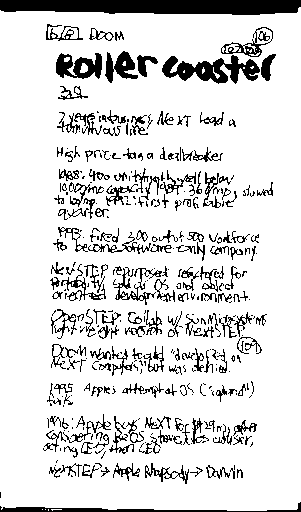 5/8 DOOM
106
Roller coaster
329
7 years in business NeXT lead a
tumultuous life.
High price tag a dealbreaker
1988: 400 units/month, well below
10,000/mo capacity. 1989: 360/mo, slowed
to 1992: first profitable
quarter.
1993: fired 300 out of 500 workforce
to become software-only company
NeXTSTEP repurposed refactored for
portability, sold as OS and object
oriented development environment.
OpenSTEP: Collab w/ Sun Microsystems
light weight version of NextSTEP
DOOM wanted to add "developed on
NeXT Computers", but was denied.
109
1995 Apple's attempt at OS ("Copland")
fails
1996: Apple buys NeXT for $429m, after
considering BeOS, Steve Jobs adviser,
acting CEO, then CEO
NeXTSTEP → Apple Rhapsody → Darwin